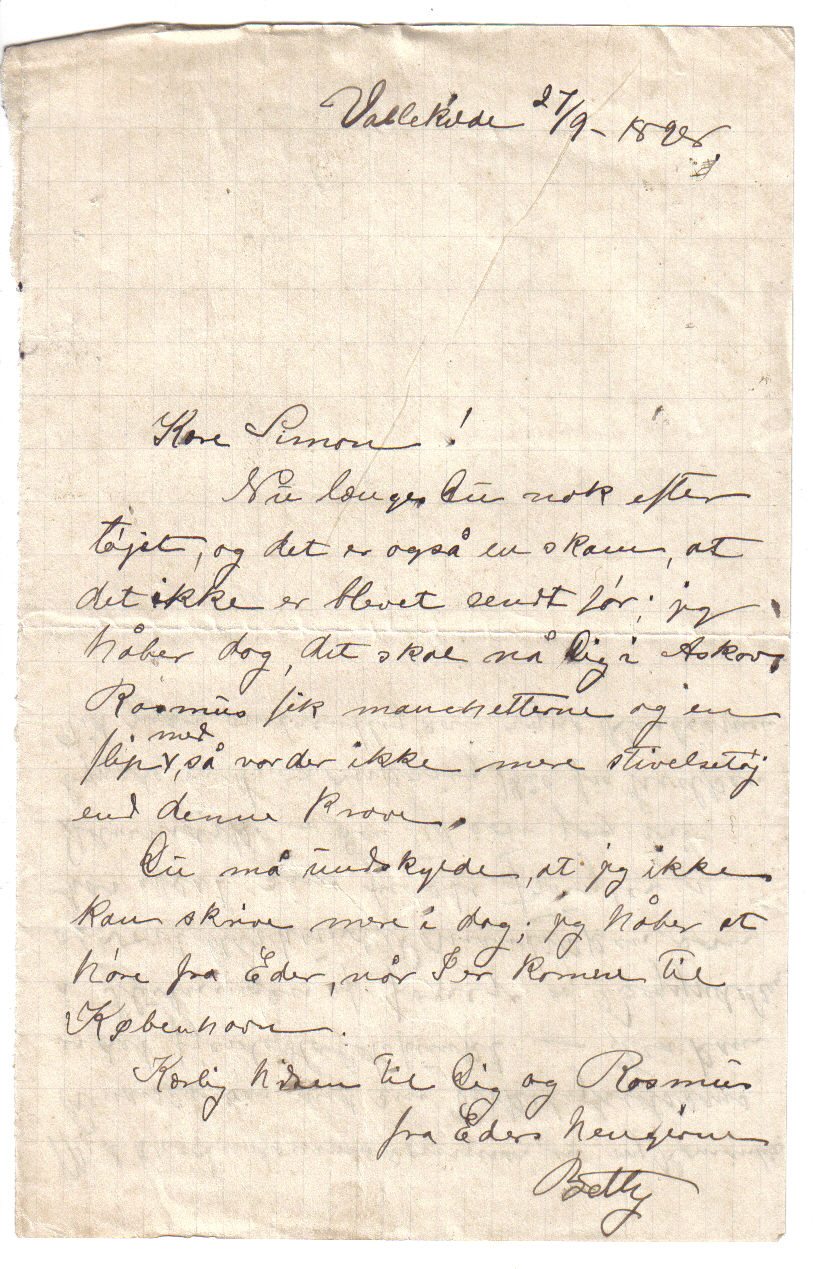 Vallekilde 27/9 - 1898.
Kære Simon!
Nu længes Du nok efter
tøjet, og det er også en skam, at
det ikke er blevet sendt før; jeg
håber dog, det skal nå Dig i Askov.
Rasmus fik manchetterne og en
flip med, så var der ikke mere stivelsetøj
end denne Krave.
Du må undskylde, at jeg ikke
kan skrive mere i dag; jeg håber at
høre fra Eder, når I er komne til
København.
Kærlig hilsen til Dig og Rasmus
fra Eders hengivne
Betty